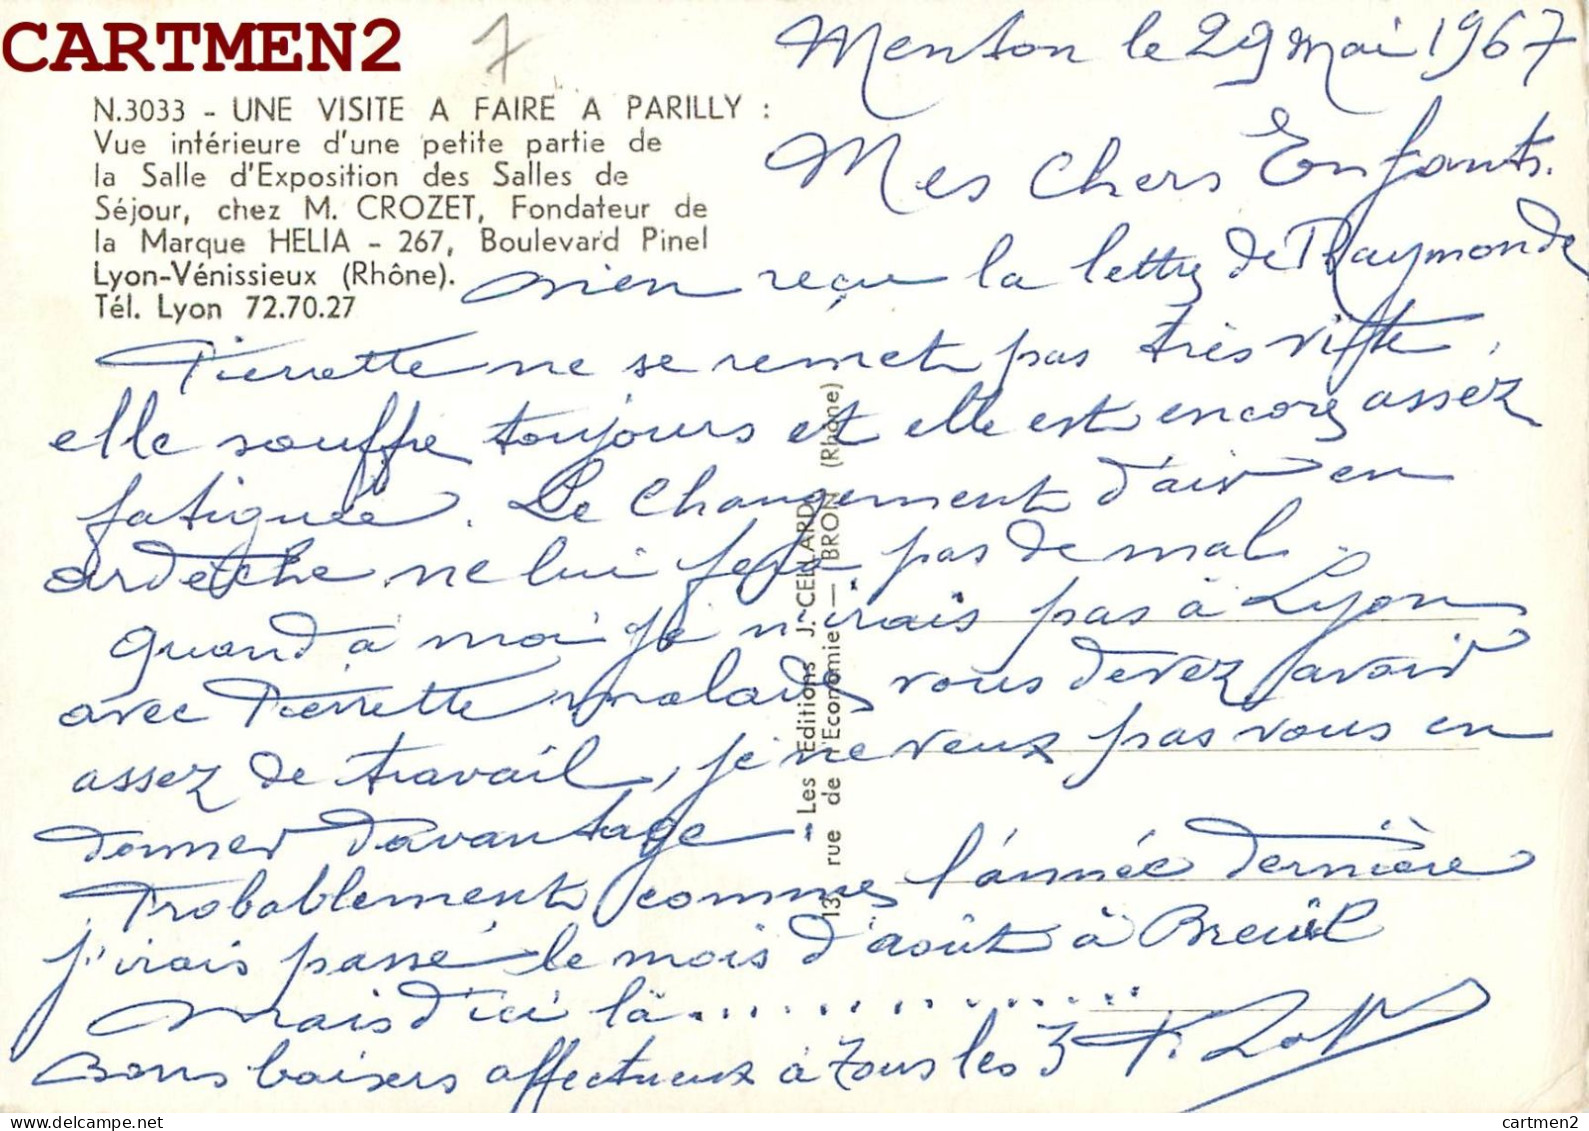 CARTMEN2
7
Menton le 29 mai 1967
N.3033 - UNE VISITE A FAIRE A PARILLY :
Vue intérieure d'une petite partie de
la Salle d'Exposition des Salles de
Séjour, chez M. CROZET, Fondateur de
la Marque HELIA - 267, Boulevard Pinel
Lyon-Vénissieux (Rhône).
Tél. Lyon 72.70.27
Mes Chers Enfants.
Bien reçu la lettre de Raymonde
Pierrette ne se remet pas très vitte,
elle souffre toujours et elle est encore assez
fatiguée. Le Changement d'air en
ardèche ne lui fera pas de mal.
Quand à moi je n'irais pas à Lyon
avec Pierrette malade, vous devez avoir
assez de travail, je ne veux pas vous en
donner davantage
Probablement comme l'année dernière
j'irais passé le mois d'août à Breuil
Mais d'ici là...............
Bons baisers affectueux à tous les 3
Les Editions J. CELLARD
13, rue de l'Economie — BRON (Rhône)
cartmen2